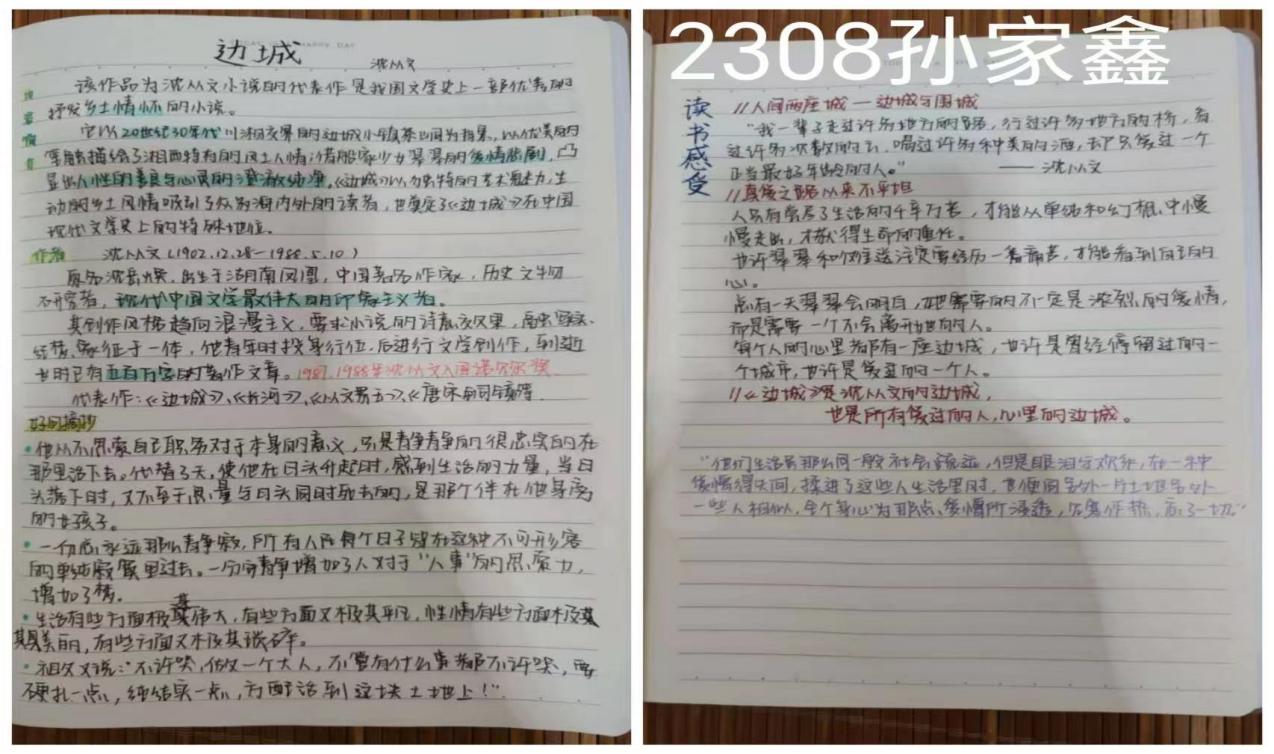 边城
沈从文
该作品为沈从文小说的代表作,是我国文学史上一部优秀的
抒发乡土情怀的小说。
它以20世纪30年代川湘交界的边城小镇茶峒为背景,以优美的
笔触描绘了湘西特有的风土人情;借船家少女翠翠的爱情悲剧,凸
显出人性的善良与心灵的澄澈纯净。《边城》以独特的艺术魅力,生
动的乡土风情吸引了众多海内外的读者,也奠定了《边城》在中国
现代文学史上的特殊地位。
作者 沈从文(1902.12.28-1988.5.10)
原名沈岳焕,出生于湖南凤凰,中国著名作家,历史文物
研究者,现代中国文学最伟大的印象主义者。
其创作风格趋向浪漫主义,要求小说的诗意效果,融写实、
纪梦、象征于一体,他青年时投身行伍,后进行文学创作,到逝
世时已有五百万字的著作文章。1987、1988年沈从文入围诺贝尔奖
代表作:《边城》、《长河》、《从文家书》、《唐宋铜镜》等
好句摘抄
• 他从不思索自己职务对于本身的意义,只是静静的很忠实的在
那里活下去。代替了天,使他在日头升起时,感到生活的力量,当日
头落下时,又不至于思量与日头同时死去的,是那个伴在他身旁
的女孩子。
• 一切总永远那么静寂,所有人每个日子皆在这种不可形容
的单纯寂寞里过去。一分安静增加了人对于“人事”的思索力,
增加了梦。
• 生活有些方面极其伟大,有些方面又极其平凡,性情有些方面极其
美的,有些方面又极其琐碎。
• 祖父又说:“不许哭,做一个大人,不管有什么事都不许哭,要
硬扎一点,结实一点,方配活到这块土地上!”
2308孙家鑫
读书感受
//人间两座城 — 边城与围城
“我一辈子走过许多地方的路,行过许多地方的桥,看
过许多次数的云,喝过许多种类的酒,却只爱过一个
正当最好年龄的人。” —— 沈从文
//真爱之路从来不平坦
人只有尝尽了生活的千辛万苦,才能从单纯和幻想中慢
慢走出,才懂得生命的重任。
也许翠翠和傩送注定要经历一番痛苦,才能看到自己的
心。
总有一天翠翠会明白,她需要的不一定是浓烈的爱情,
而是需要一个不会离开她的人。
每个人的心里都有一座边城,也许是曾经停留过的一
个城市,也许是爱过的一个人。
//《边城》是沈从文的边城,
也是所有爱过的人,心里的边城。
“他们生活虽那么同一般社会疏远,但是眼泪与欢乐,在一种
爱憎得失间,揉进了这些人生活里时,也便同另外一片土地另外
一些人相似,全个身心为那点爱憎所浸透,见寒作热,忘了一切。”